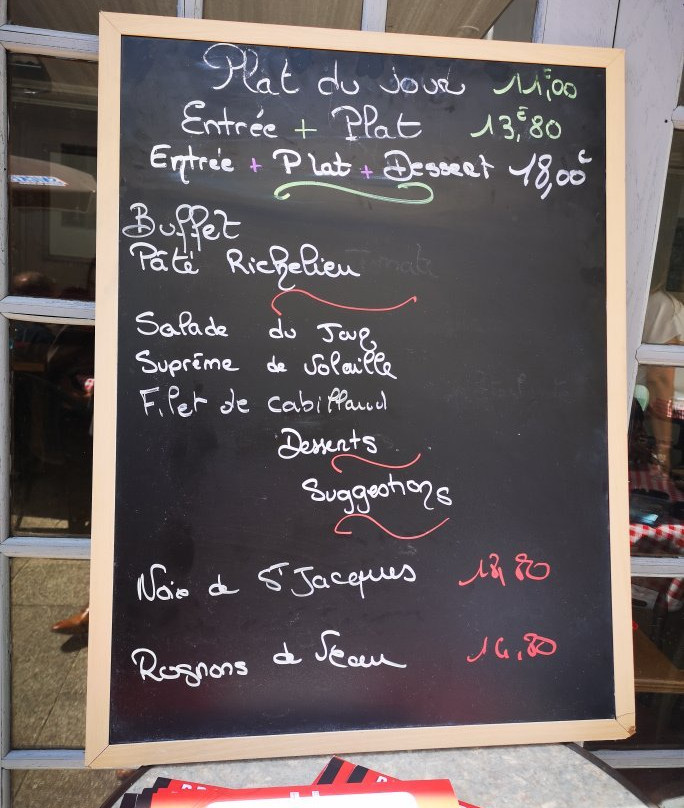 Plat du jour 11,00€
Entrée + Plat 13,€80
Entrée + Plat + Dessert 18,00€
Buffet
Pâté Richelieu
Salade du
Suprême de Volaille
Filet de cabillaud
Desserts
Suggestions
Noix de St Jacques
Rognons de Veau